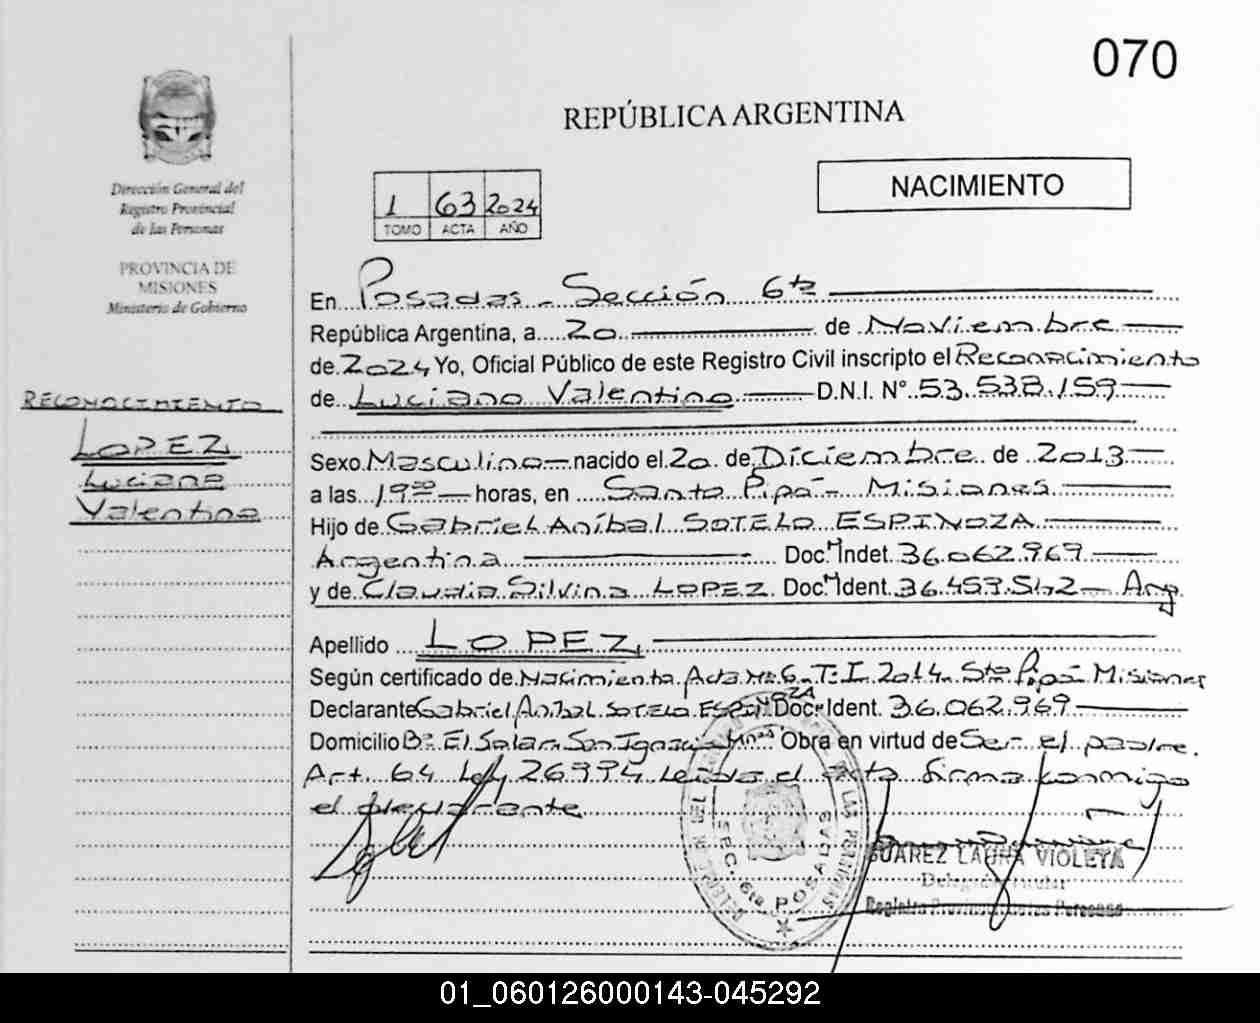 070
REPÚBLICA ARGENTINA
NACIMIENTO
Dirección General del
Registro Provincial
de las Personas
PROVINCIA DE
MISIONES
Ministerio de Gobierno
1 63 2024
TOMO ACTA AÑO
RECONOCIMIENTO
LOPEZ
Luciano
Valentino
En Posadas - Sección 6ta
República Argentina, a 20 de Noviembre
de 2024 Yo, Oficial Público de este Registro Civil inscripto el Reconocimiento
de Luciano Valentino D.N.I. N° 53.538.159
Sexo Masculino nacido el 20 de Diciembre de 2013
a las 19 00 horas, en Santo Pipó - Misiones
Hijo de Gabriel Aníbal SOTELO ESPINOZA
Argentina Doc. Indet. 36.062.969
y de Claudia Silvina LOPEZ Doc. Ident. 36.459.542 - Arg.
Apellido LOPEZ
Según certificado de Nacimiento Acta N° 6 - T: I - 2014 - Sto Pipó Misiones
Declarante Gabriel Aníbal SOTELO ESPINOZA Doc. Ident. 36.062.969
Domicilio B° El Solar - San Ignacio - Mnes Obra en virtud de Ser el padre.
Art. 64 Ley 26994 Leída el acta firma conmigo
el declarante
SEC. 6ta POSADAS
DE LAS PERSONAS
SUAREZ LAURA VIOLETA
Delegada Titular
01_060126000143-045292